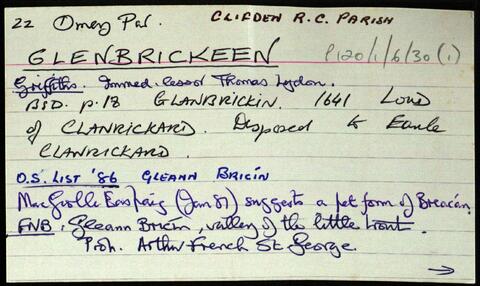 22 Omey Par. CLIFDEN R.C. PARISH
GLENBRICKEEN P120/1/6/30 (1)
Griffiths. Immed. lessor Thomas Leydon.
BSD. p.18 GLANBRICKIN. 1641 Lord
of CLANRICKARD. Disposed to Earle
CLANRICKARD.
O.S. LIST '86 GLEANN BRICÍN
Mac Giolla Easpaig (Jan 87) suggests a pet form of Breacán.
FNB. Gleann Bricín, valley of the little trout.
Prop. Arthur French St George.
→